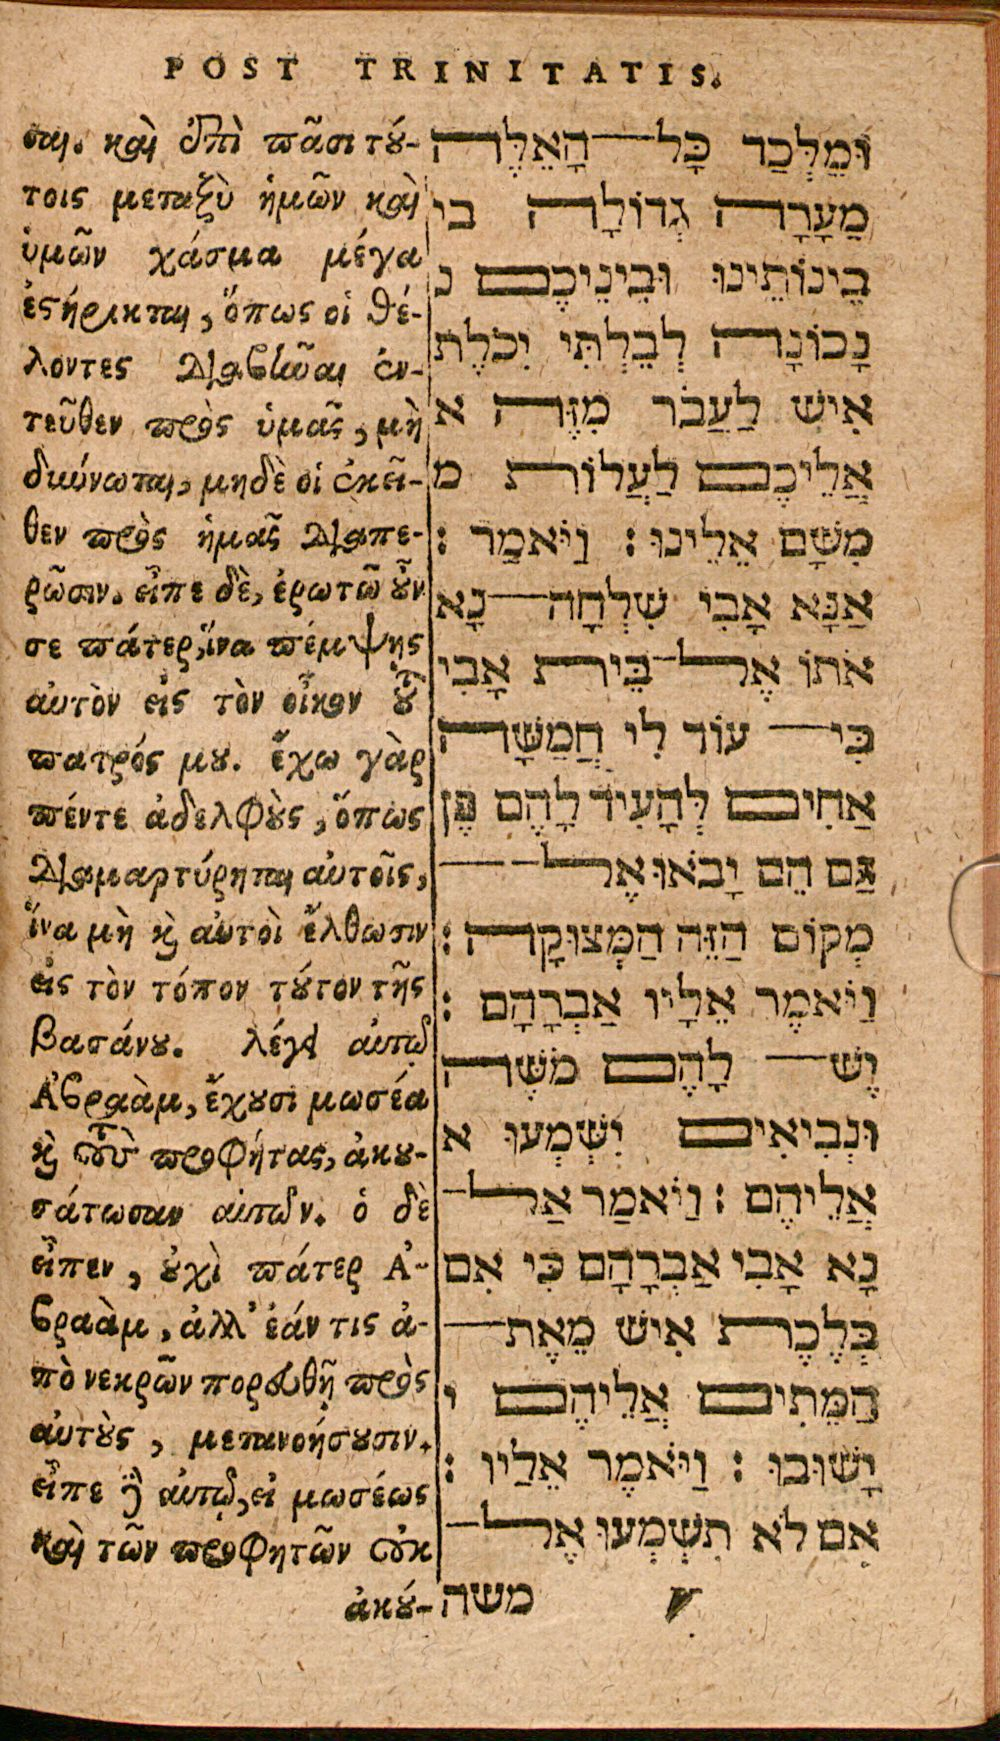 POST TRINITATIS.
σαι. καὶ ἐπὶ πᾶσι τού-
τοις μεταξὺ ἡμῶν καὶ
ὑμῶν χάσμα μέγα
ἐστήρικται, ὅπως οἱ θέ-
λοντες διαβῆναι ἐν-
τεῦθεν πρὸς ὑμᾶς, μὴ
δύνωνται, μηδὲ οἱ ἐκεῖ-
θεν πρὸς ἡμᾶς διαπε-
ρῶσιν. εἶπε δὲ, ἐρωτῶ οὖν
σε πάτερ, ἵνα πέμψῃς
αὐτὸν εἰς τὸν οἶκον τοῦ
πατρός μου. ἔχω γὰρ
πέντε ἀδελφοὺς, ὅπως
διαμαρτύρηται αὐτοῖς,
ἵνα μὴ καὶ αὐτοὶ ἔλθωσιν
εἰς τὸν τόπον τοῦτον τῆς
βασάνου. λέγει αὐτῷ
Ἀβραὰμ, ἔχουσι μωσέα
καὶ τοὺς προφήτας, ἀκου-
σάτωσαν αὐτῶν. ὁ δὲ
εἶπεν, οὐχὶ πάτερ Ἀ-
βραὰμ, ἀλλ' ἐάν τις ἀ-
πὸ νεκρῶν πορευθῇ πρὸς
αὐτοὺς, μετανοήσουσιν.
εἶπε δὲ αὐτῷ, εἰ μωσέως
καὶ τῶν προφητῶν οὐκ
ἀκού-
וּמִלְּבַד כָּל הָאֵלֶּה
מַעָרָה גְדוֹלָה בי
בֵינוֹתֵינוּ וּבֵינֵיכֶם נ
נָכוֹנָה לְבִלְתִּי יְכֹלֶת
אִישׁ לַעֲבֹר מִזֶּה א
אֲלֵיכֶם לַעֲלוֹת מ
מִשָּׁם אֵלֵינוּ : וַיֹּאמַר :
אַנָּא אָבִי שִׁלְחָה נָא
אֹתוֹ אֶל בֵּית אָבִי
כִּי עוֹד לִי חֲמִשָּׁה
אַחִים לְּהָעִיד לָהֶם פֶּן
גַּם הֵם יָבֹאוּ אֶל
מְקוֹם הַזֶּה הַמְּצוּקָה :
וַיֹּאמֶר אֵלָיו אַבְרָהָם :
יֶשׁ לָהֶם מֹשֶׁה
וּנְבִיאִים יִשְׁמְעוּ א
אֲלֵיהֶם : וַיֹּאמַר אַל
נָא אָבִי אַבְרָהָם כִּי אִם
בְּלֶכֶת אִישׁ מֵאֶת
הַמֵּתִים אֲלֵיהֶם י
יָשׁוּבוּ : וַיֹּאמֶר אֵלַיו :
אִם לֹא תִשְׁמְעוּ אֶל
משה